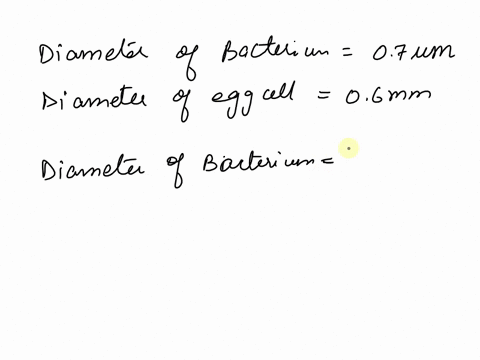 Diameter of Bacterium = 0.7 um
Diameter of egg cell = 0.6 mm
Diameter of Bacterium =